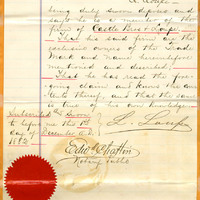 being duly sworn deposes and
says he is a member of the
firm of Castle Bros & Loupe.
That his said firm are the
exclusive owners of the Trade
Mark and name hereinbefore
mentioned and described;
That he has read the fore-
going claim and knows the con-
tents thereof and that the same
is true of his own knowledge.
Subscribed & Sworn
to before me this
day of December A.D.
1882
L. Loupe
Notary Public